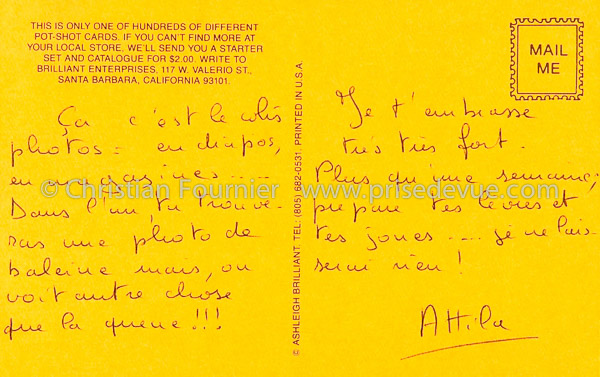 THIS IS ONLY ONE OF HUNDREDS OF DIFFERENT
POT-SHOT CARDS. IF YOU CAN'T FIND MORE AT
YOUR LOCAL STORE, WE'LL SEND YOU A STARTER
SET AND CATALOGUE FOR $2.00. WRITE TO
BRILLIANT ENTERPRISES, 117 W. VALERIO ST.,
SANTA BARBARA, CALIFORNIA 93101.
MAIL
ME
Ça c'est le colis
photos : en diapos,
en magasines ....
Dans l'un, tu trouve-
ras une photo de
baleine mais, on
voit autre chose
que la queue !!!
© ASHLEIGH BRILLIANT. TEL: (805) 682-0531. PRINTED IN U.S.A.
Je t'embrasse
très très fort.
Plus qu'une semaine,
prépare tes lèvres et
tes joues .... je ne lais-
serai rien !
Attila
© Christian Fournier - www.prisedevue.com